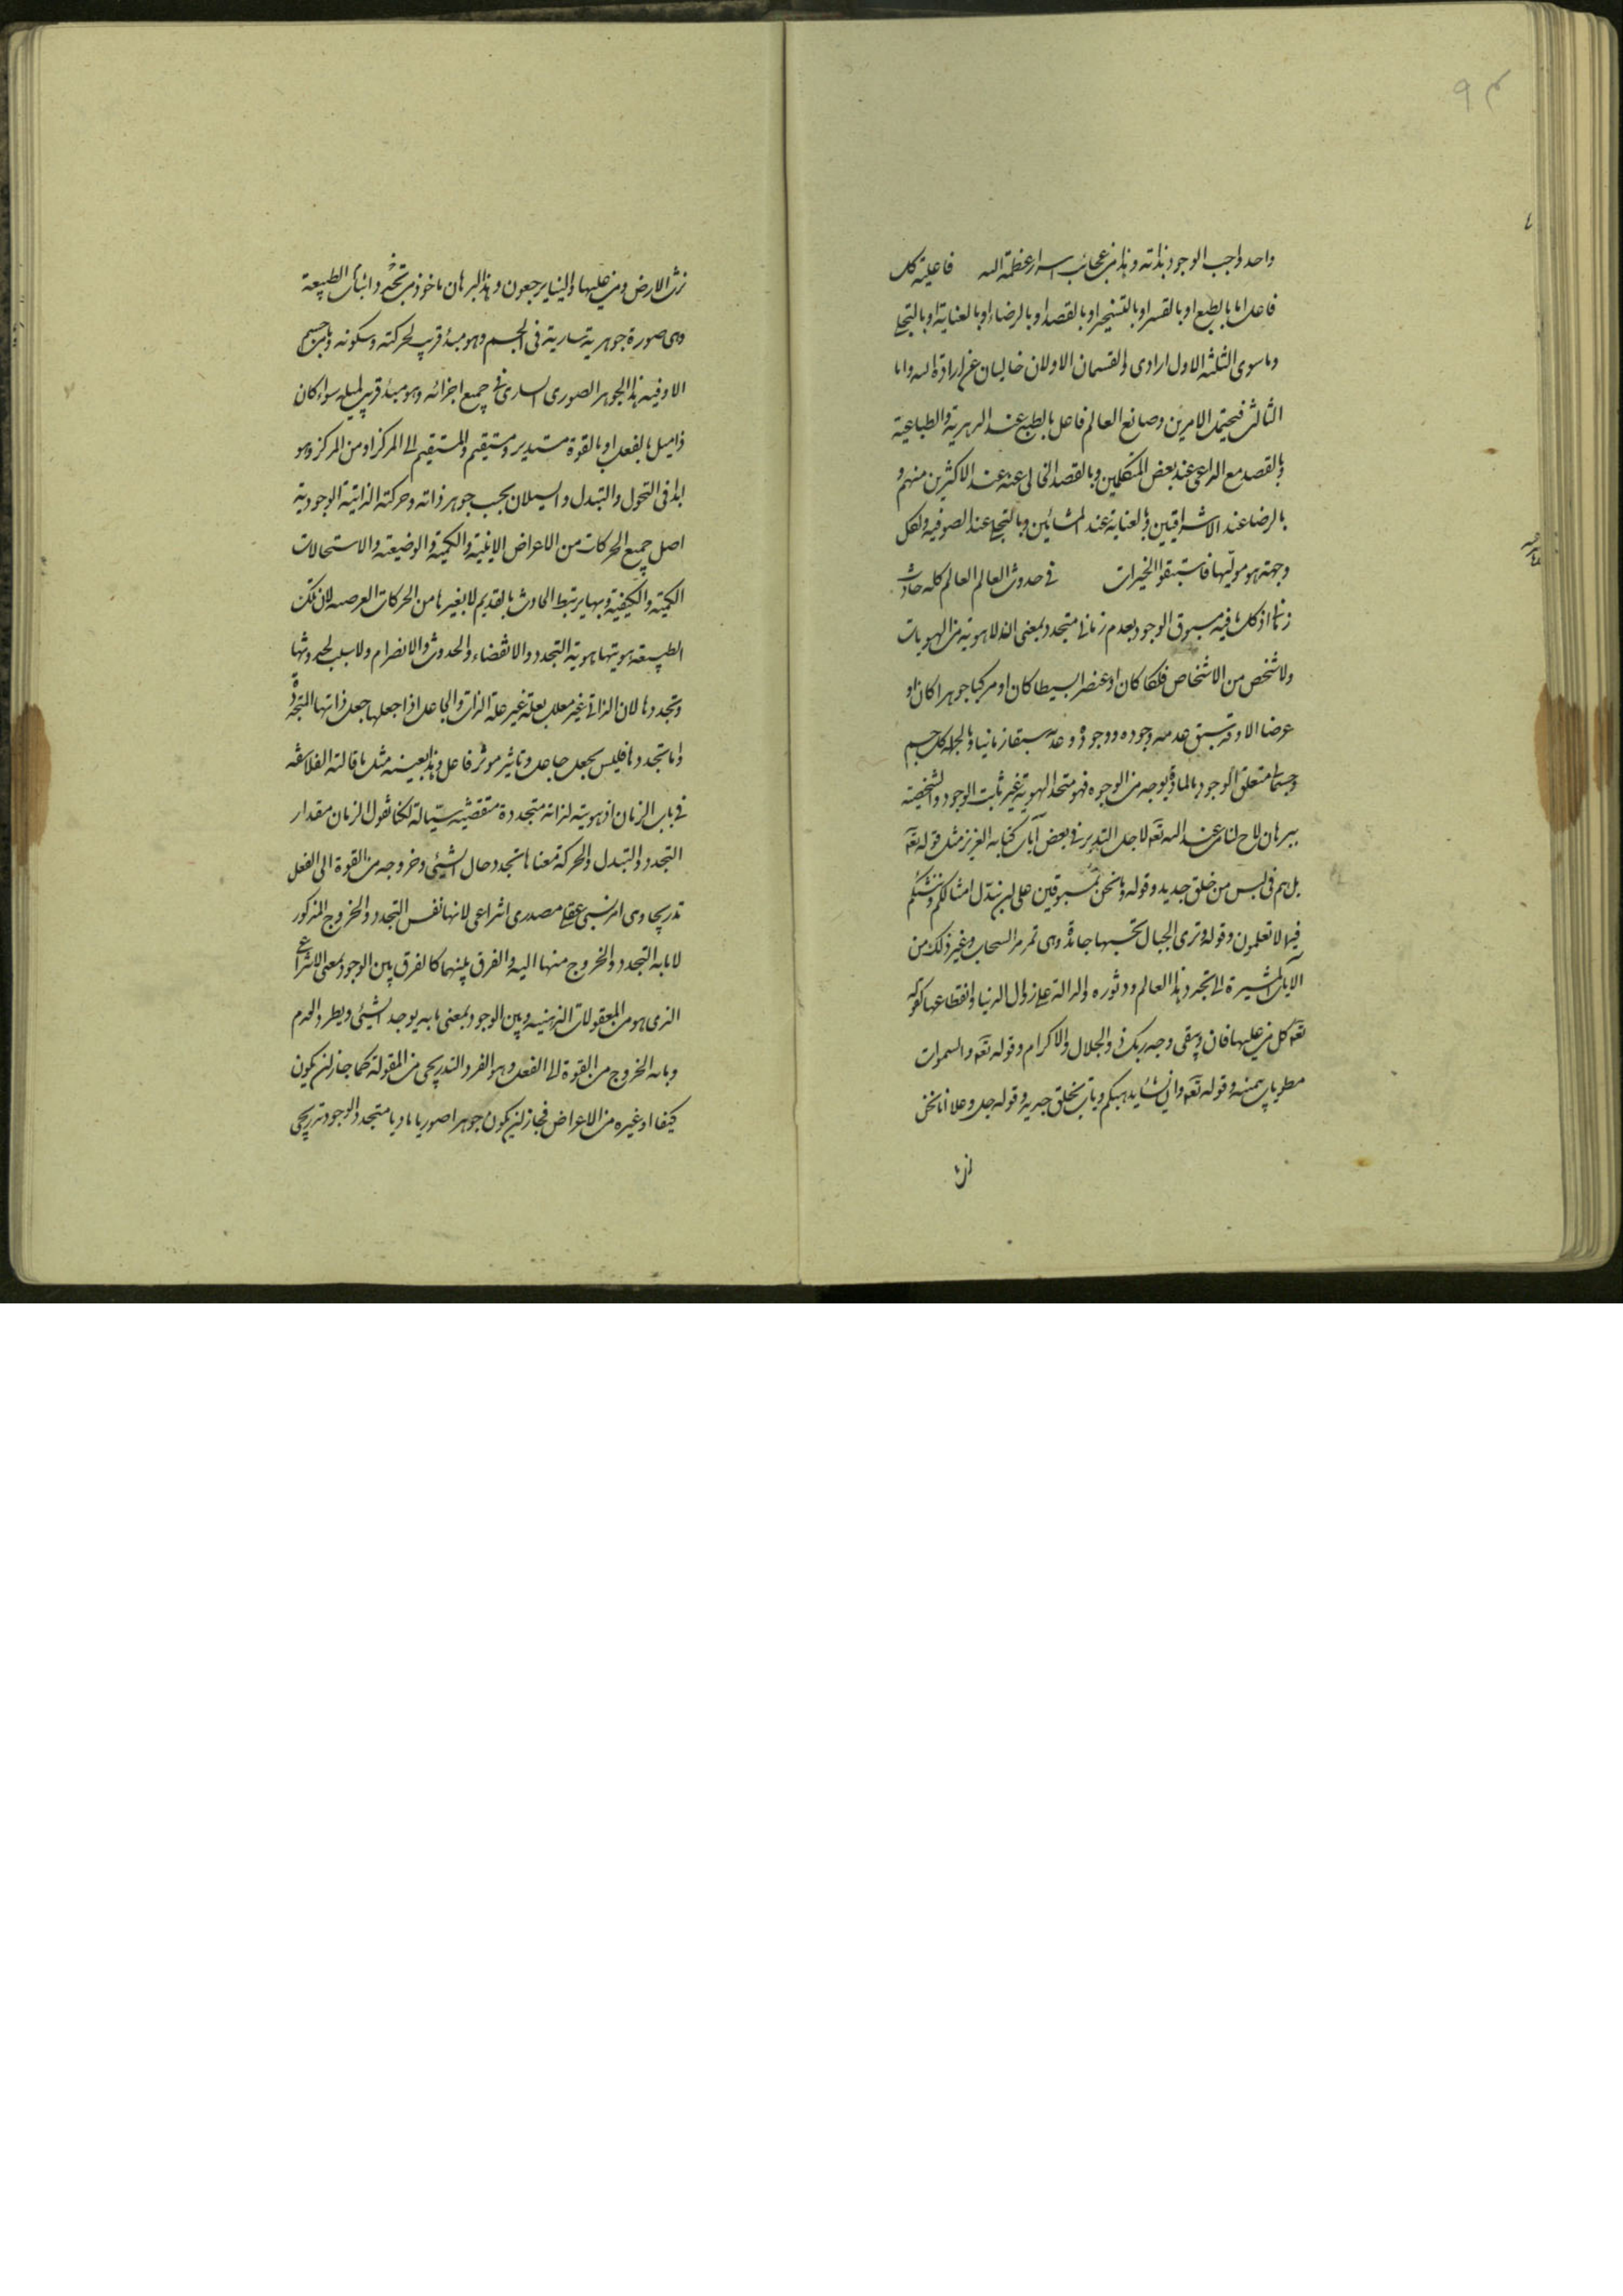 ۹۴
واحد واجب الوجود بذاته و هذا من عجائب اسرار عظمة الله فاعلية كل
فاعل اما بالطبع او بالقسر او بالتسخير او بالقصد او بالرضاء او بالعناية او بالتجلي
وما سوى الثلثة الاول ارادى والقسمان الاولان خاليان عن ارادة البته واما
الثالث فيحتمل الامرين وصانع العالم فاعل بالطبع عند الدهرية والطباعية
وبالقصد مع الداعى عند بعض المتكلمين وبالقصد الخالى عنه عند الاكثرين منهم و
بالرضا عند الاشراقيين وبالعناية عند المشائين وبالتجلي عند الصوفيه ولكل
وجهة هو موليها فاستبقوا الخيرات فى حدوث العالم العالم كله حادث
زمانى اذ كل ما فيه مسبوق الوجود بعدم زمانى متجدد بمعنى ان لا هوية من الهويات
ولا شخص من الاشخاص فلكا كان او عنصرا بسيطا كان او مركبا جوهرا كان او
عرضا الا وقد سبق عدمه وجوده ووجوده عدمه سبقا زمانيا وبالجملة كل جسم
وجسمانى متعلق الوجود بالمادة بوجه من الوجوه فهو متجدد الهوية غير ثابت الوجود والشخصية
ببرهان لاح لنا من عند الله تعه لاجل التدبر فى بعض آيات كتابه العزيز مثل قوله تعه
بل هم فى لبس من خلق جديد وقوله وما نحن بمسبوقين على ان نبدل امثالكم وننشئكم
فيما لا تعلمون وقوله وترى الجبال تحسبها جامدة وهى تمر مر السحاب وغير ذلك من
الآيات المشيرة الى تجدد هذا العالم ودثوره والدالة على زوال الدنيا وانقطاعها كقوله
تعه كل من عليها فان ويبقى وجه ربك ذو الجلال والاكرام وقوله تعه والسموات
مطويات بيمينه وقوله تعه وان يشأ يذهبكم ويأت بخلق جديد وقوله جل وعلا انا نحن
نرث الارض ومن عليها والينا يرجعون وهذا البرهان ماخوذ من تجدد واثبات الطبيعة
وهى صورة جوهرية سارية فى الجسم وهو مبدأ قريب لحركته وسكونه وما من جسم
الا وفيه هذا الجوهر الصورى السارى فى جميع اجزائه وهو مبدأ قريب لميله سواء كان
ذا ميل بالفعل او بالقوة مستدير ومستقيم والمستقيم الى المركز او من المركز وهو
ابدا فى التحول والتبدل والسيلان بحسب جوهر ذاته وحركته الذاتية الوجودية
اصل جميع الحركات من الاعراض الاينية والكمية والوضيعته والاستحالات
الكمية والكيفية وبها يرتبط الحادث بالقديم لا بغيرها من الحركات العرضيه لان تلك
الطبيعة هويتها هوية التجدد والانقضاء والحدوث والانصرام ولا سبب لحدوثها
وتجددها لان الذاتى غير معلل بعلة غير علة الذات والجاعل اذا جعلها جعل ذاتها المتجددة
واما تجددها فليس بجعل جاعل وتاثير موثر فاعل وهذا بعينه مثل ما قالته الفلاسفه
فى باب الزمان ان هويته لذاته متجددة متقضيه سيالة لكنا نقول الزمان مقدار
التجدد والتبدل والحركة معناها تجدد حال الشيئ وخروجه من القوة الى الفعل
تدريجا وهى امر نسبى عقلى مصدرى انتزاعى لانها نفس التجدد والخروج المذكور
لا ما به التجدد والخروج منها اليه والفرق بينهما كالفرق بين الوجود بمعنى الانتزاعى
الذى هو من المعقولات الذهنيه وبين الوجود بمعنى ما به يوجد الشيئ ويطرد العدم
وما به الخروج من القوة الى الفعل وهو الفرد التدريجى من المقولة كما جاز ان يكون
كيفا او غيره من الاعراض فجاز ان يكون جوهرا صوريا ماديا متجدد الوجود تدريجى